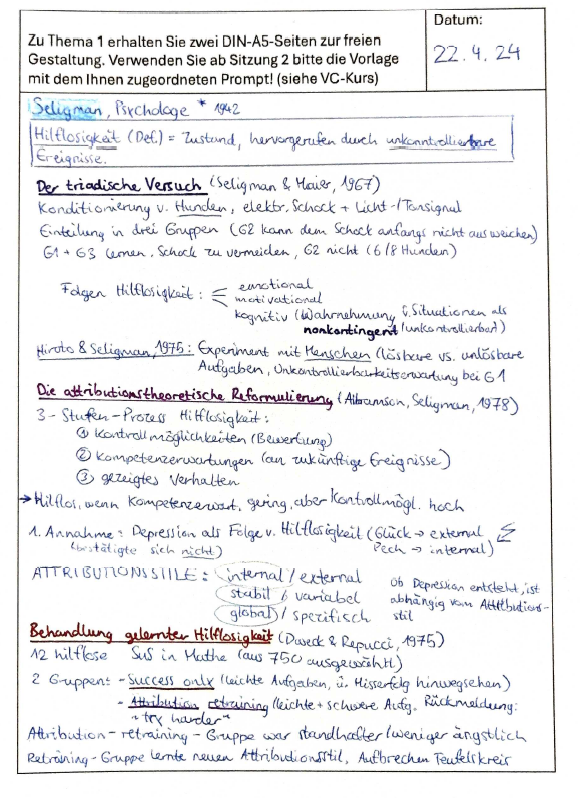 Zu Thema 1 erhalten Sie zwei DIN-A5-Seiten zur freien
Gestaltung. Verwenden Sie ab Sitzung 2 bitte die Vorlage
mit dem Ihnen zugeordneten Prompt! (siehe VC-Kurs)
Datum:
22.4.24
Seligman, Psychologe * 1942
Hilflosigkeit (Def.) = Zustand, hervorgerufen durch unkontrollierbare
Ereignisse.
Der triadische Versuch (Seligman & Maier, 1967)
Konditionierung v. Hunden, elektr. Schock + Licht-/Tonsignal
Einteilung in drei Gruppen (G2 kann dem Schock anfangs nicht ausweichen)
G1 + G3 lernen, Schock zu vermeiden, G2 nicht (6/8 Hunden)
Folgen Hilflosigkeit: emotional
motivational
kognitiv (Wahrnehmung v. Situationen als
nonkontingent/unkontrollierbar)
Hiroto & Seligman, 1975: Experiment mit Menschen (lösbare vs. unlösbare
Aufgaben, Unkontrollierbarkeitserwartung bei G1
Die attributionstheoretische Reformulierung (Abramson, Seligman, 1978)
3-Stufen-Prozess Hilflosigkeit:
① Kontrollmöglichkeiten (Bewertung)
② Kompetenzerwartungen (an zukünftige Ereignisse)
③ gezeigtes Verhalten
→ Hilflos, wenn Kompetenzerwart. gering, aber Kontrollmögl. hoch
1. Annahme: Depression als Folge v. Hilflosigkeit (Glück → external
(bestätigte sich nicht) Pech → internal)
ATTRIBUTIONSSTILE: internal / external
stabil / variabel
global / spezifisch
Ob Depression entsteht, ist
abhängig vom Attributions-
stil
Behandlung gelernter Hilflosigkeit (Dweck & Repucci, 1975)
12 hilflose SuS in Mathe (aus 750 ausgewählt)
2 Gruppen: - Success only (leichte Aufgaben, ü. Misserfolg hinwegsehen)
- Attribution retraining (leichte + schwere Aufg. Rückmeldung:
"try harder"
Attribution-retraining-Gruppe war standhafter/weniger ängstlich
Retraining-Gruppe lernte neuen Attributionsstil, Aufbrechen Teufelskreis